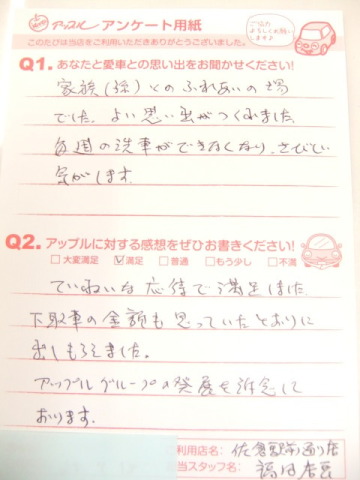 アップル アンケート用紙
ご協力
よろしくお願い
します♪
このたびは当店をご利用いただきありがとうございました。
Q1. あなたと愛車との思い出をお聞かせください!
家族(孫)とのふれあいの場
でした。よい思い出がつくれました
毎週の洗車ができなくなり、さびしい
気がします
Q2. アップルに対する感想をぜひお書きください!
□大変満足 ☑満足 □普通 □もう少し □不満
ていねいな応待で満足しました
下取車の金額も思っていたとおりに
出してもらえました。
アップルグループの発展を祈念して
おります。
利用店名: 佐倉寺崎通り店
当スタッフ名: 福田店長